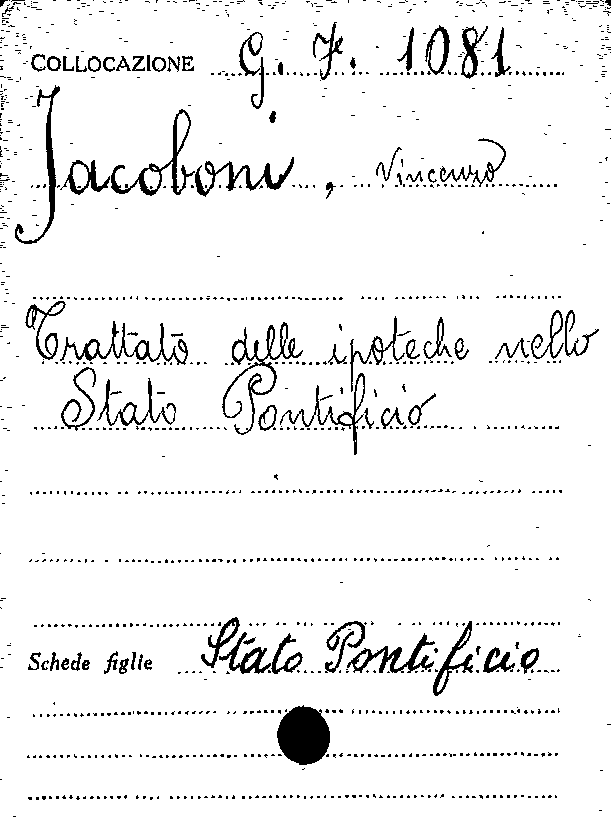 COLLOCAZIONE G. F. 1081
Jacoboni, Vincenzo
Trattato delle ipoteche nello
Stato Pontificio
Schede figlie Stato Pontificio